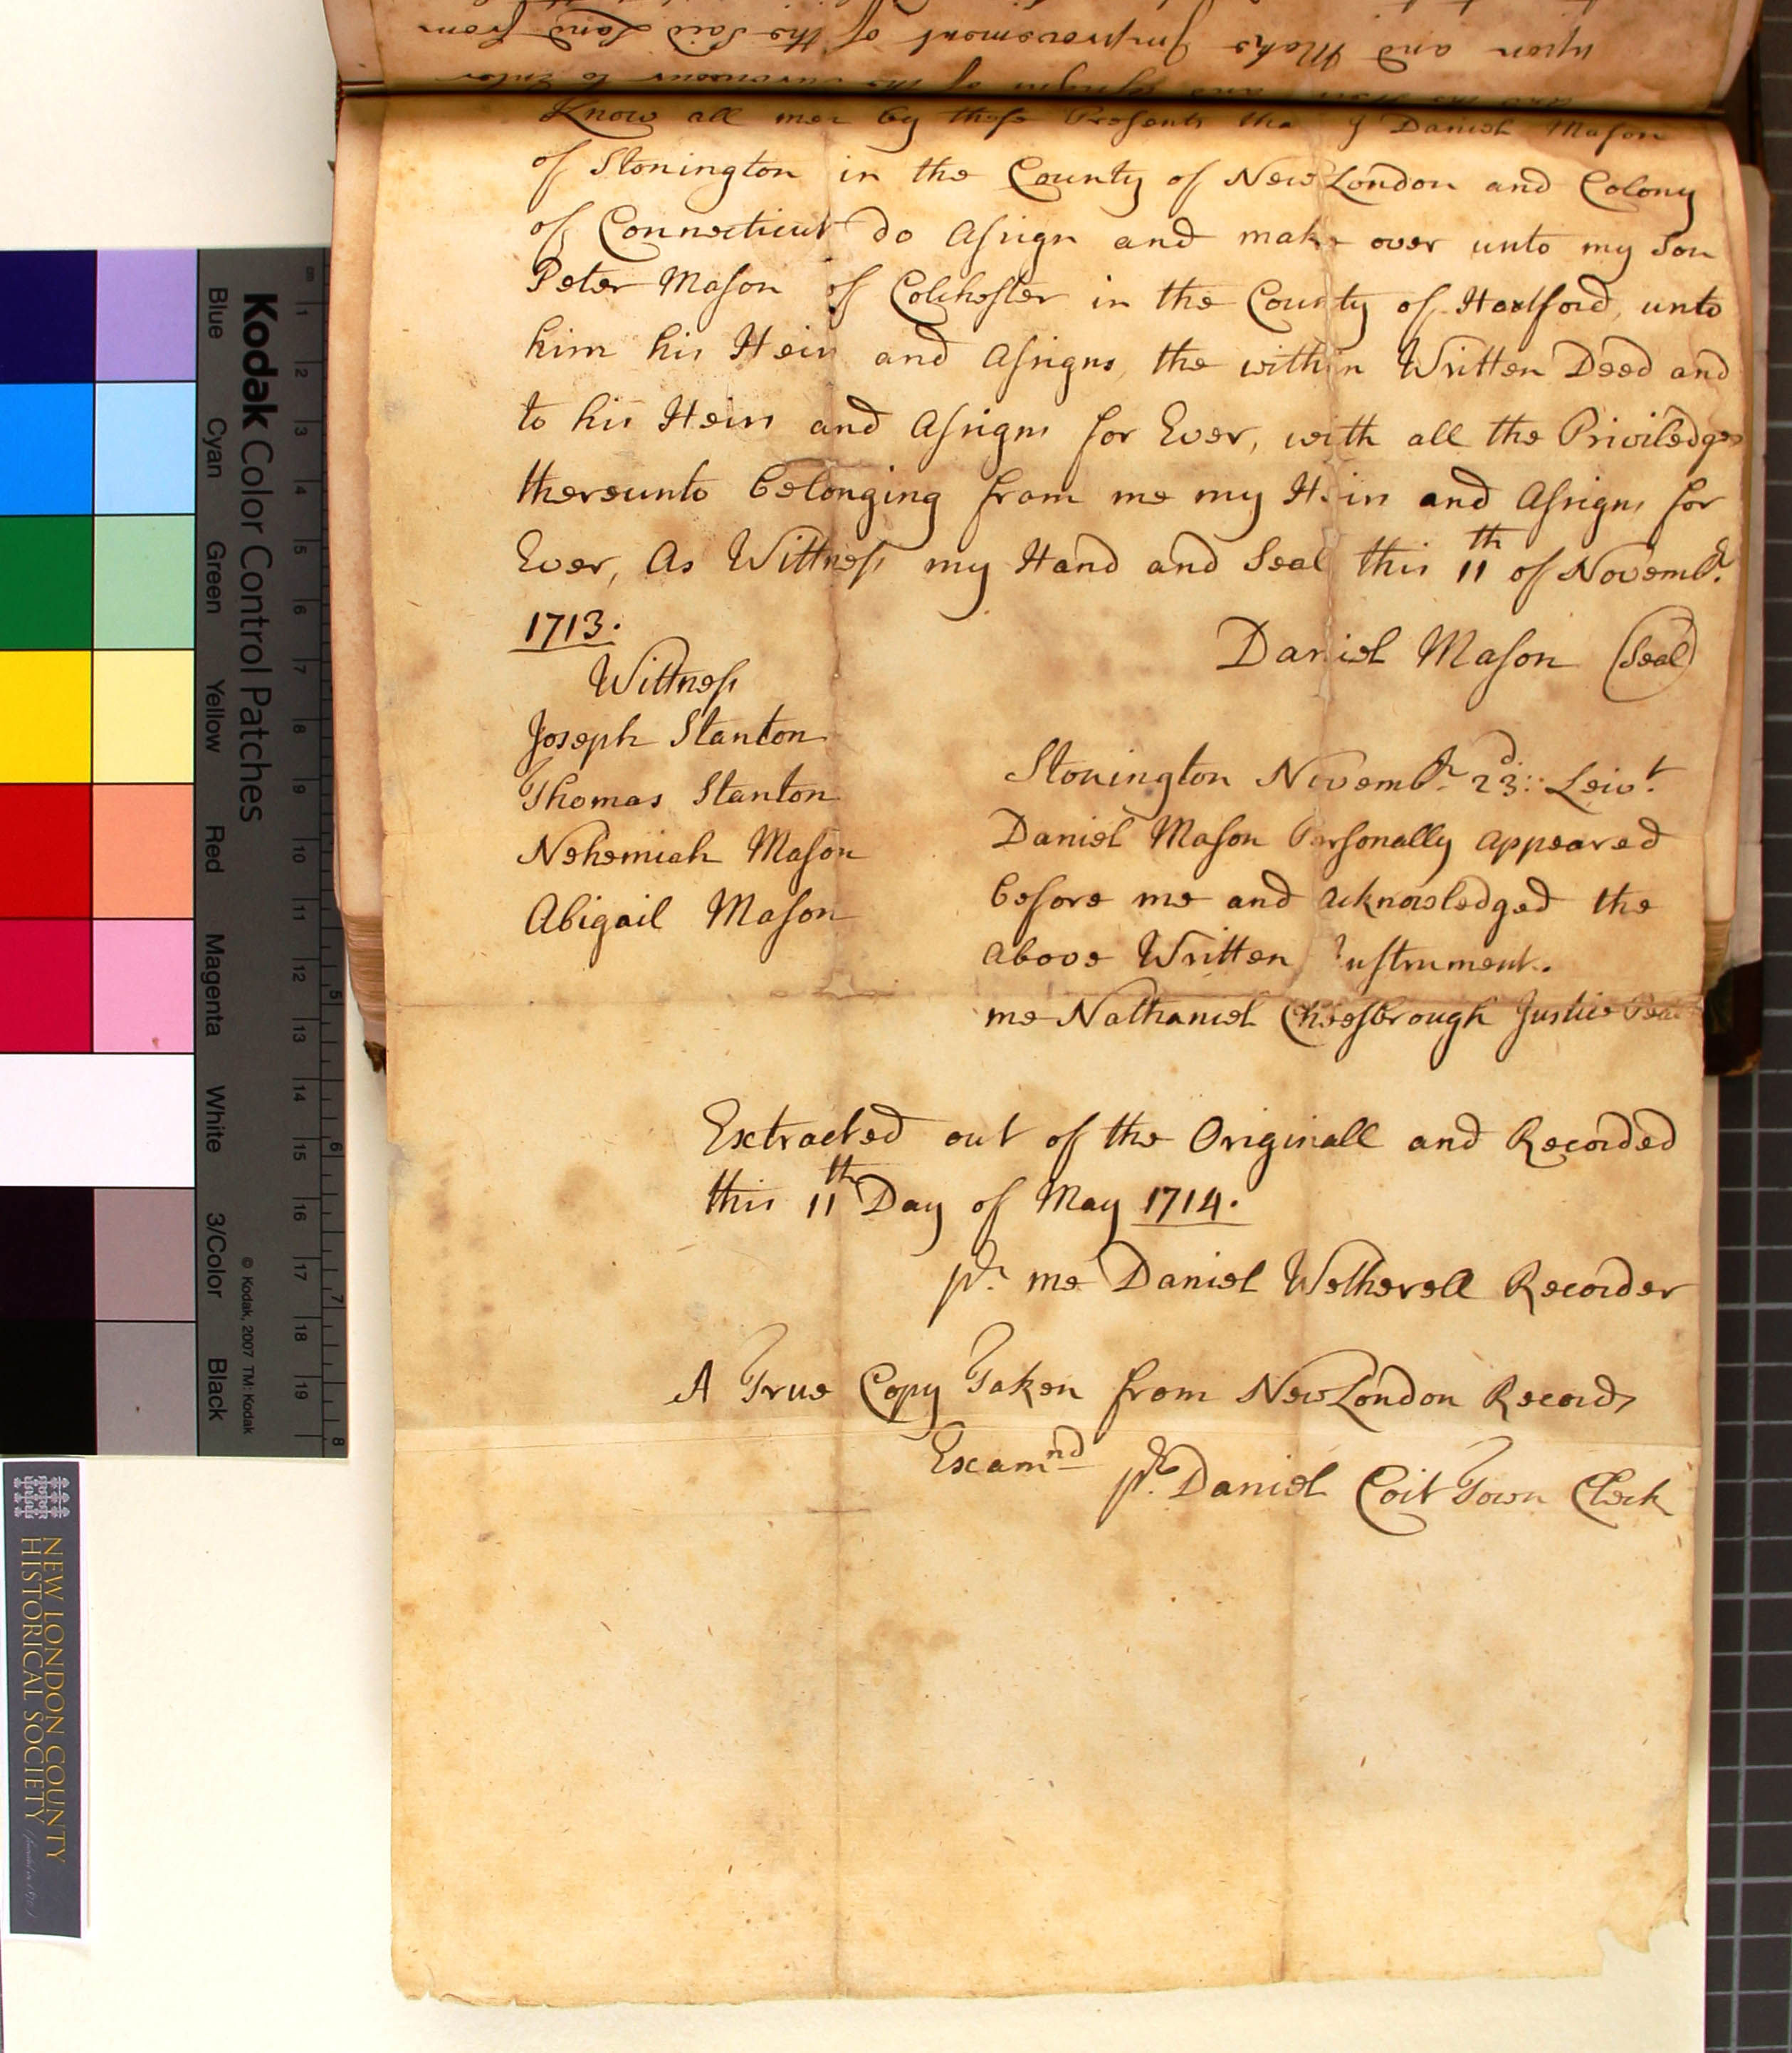 upon and Make Improvement of the Said Land from
Know all men by these Presents tha I Daniel Mason
of Stonington in the County of New London and Colony
of Connecticut do Assign and make over unto my Son
Peter Mason of Colchester in the County of Hartford, unto
him his Heirs and Assigns, the within Written Deed and
to his Heirs and Assigns for Ever, with all the Priviledges
thereunto belonging from me my Heirs and Assigns for
Ever, As Wittness my Hand and Seal this 11th of Novembr.
1713.
Daniel Mason (Seal)
Wittness
Joseph Stanton
Thomas Stanton
Nehemiah Mason
Abigail Mason
Stonington Novembr. 23d: Leivt.
Daniel Mason Personally appeared
before me and acknowledged the
above Written Instrument.
me Nathaniel Cheesbrough Justice Peac
Extracted out of the Originall and Recorded
this 11th Day of May 1714.
pr. me Daniel Wetherell Recorder
A True Copy Taken from New London Records
Examnd pr. Daniel Coit Town Clerk
Kodak Color Control Patches
© Kodak, 2007 TM: Kodak
Blue Cyan Green Yellow Red Magenta White 3/Color Black
1 2 3 4 5 6 7 8 9 10 11 12 13 14 15 16 17 18 19
5 6 7 8
NEW LONDON COUNTY
HISTORICAL SOCIETY